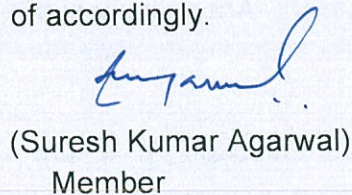 of accordingly.
(Suresh Kumar Agarwal)
Member